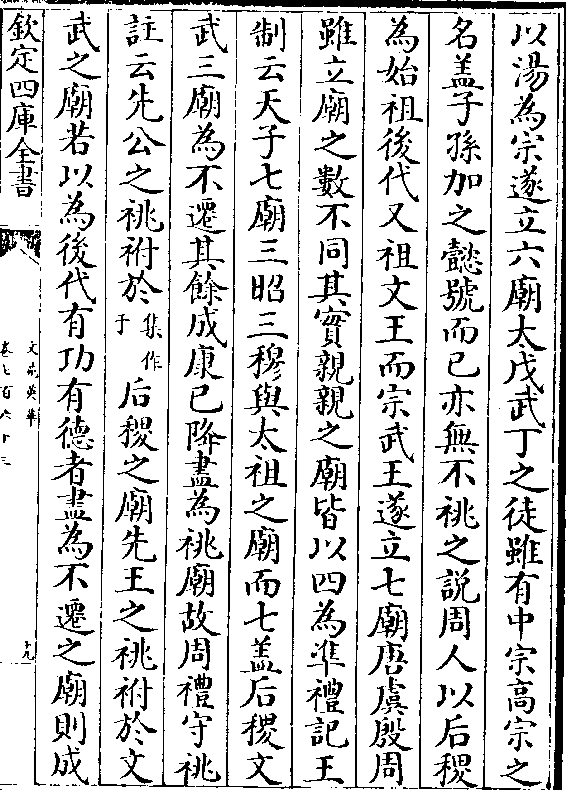 以湯為宗遂立六廟太戊武丁之徒雖有中宗高宗之
名盖子孫加之懿號而已亦無不祧之説周人以后稷
為始祖後代又祖文王而宗武王遂立七廟唐虞殷周
雖立廟之數不同其實親親之廟皆以四為準禮記王
制云天子七廟三昭三穆與太祖之廟而七盖后稷文
武三廟為不遷其餘成康已降盡為祧廟故周禮守祧
註云先公之祧祔於集作于后稷之廟先王之祧祔於文
武之廟若以為後代有功有德者盡為不遷之廟則成
欽定四庫全書
文苑英華
卷七百六十三
十九